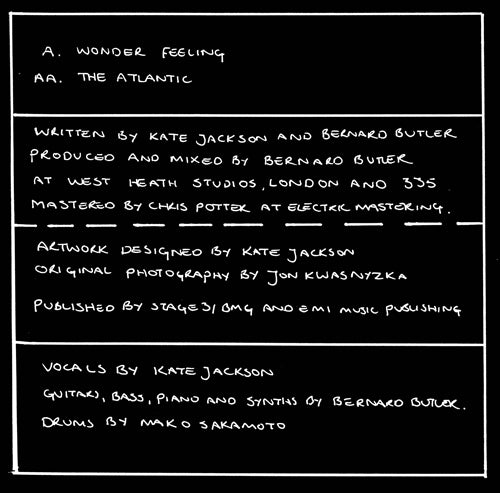 A. WONDER FEELING
AA. THE ATLANTIC
WRITTEN BY KATE JACKSON AND BERNARD BUTLER
PRODUCED AND MIXED BY BERNARD BUTLER
AT WEST HEATH STUDIOS, LONDON AND 335
MASTERED BY CHRIS POTTER AT ELECTRIC MASTERING.
ARTWORK DESIGNED BY KATE JACKSON
ORIGINAL PHOTOGRAPHY BY JON KWASNYZKA
PUBLISHED BY STAGE3/BMG AND EMI MUSIC PUBLISHING
VOCALS BY KATE JACKSON
GUITARS, BASS, PIANO AND SYNTHS BY BERNARD BUTLER.
DRUMS BY MAKO SAKAMOTO